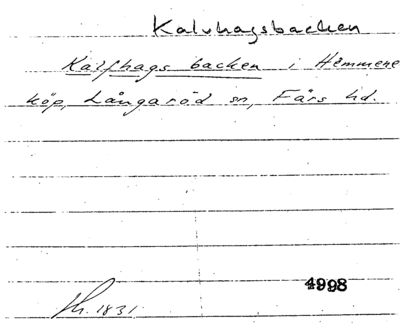 Kalvhagsbacken
Kalfhags backen i Hemmene
köp, Långaröd sn, Färs hd.
4998
1831